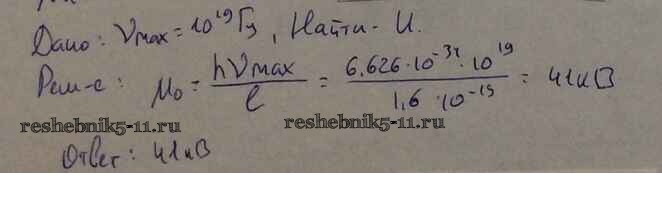 Дано: νmax = 10¹⁹ Гц, Найти - U.
Реш-е: U₀ = hνmax / e = 6,626·10⁻³⁴·10¹⁹ / 1,6·10⁻¹⁹ = 41кВ
reshebnik5-11.ru reshebnik5-11.ru
Ответ: 41кВ